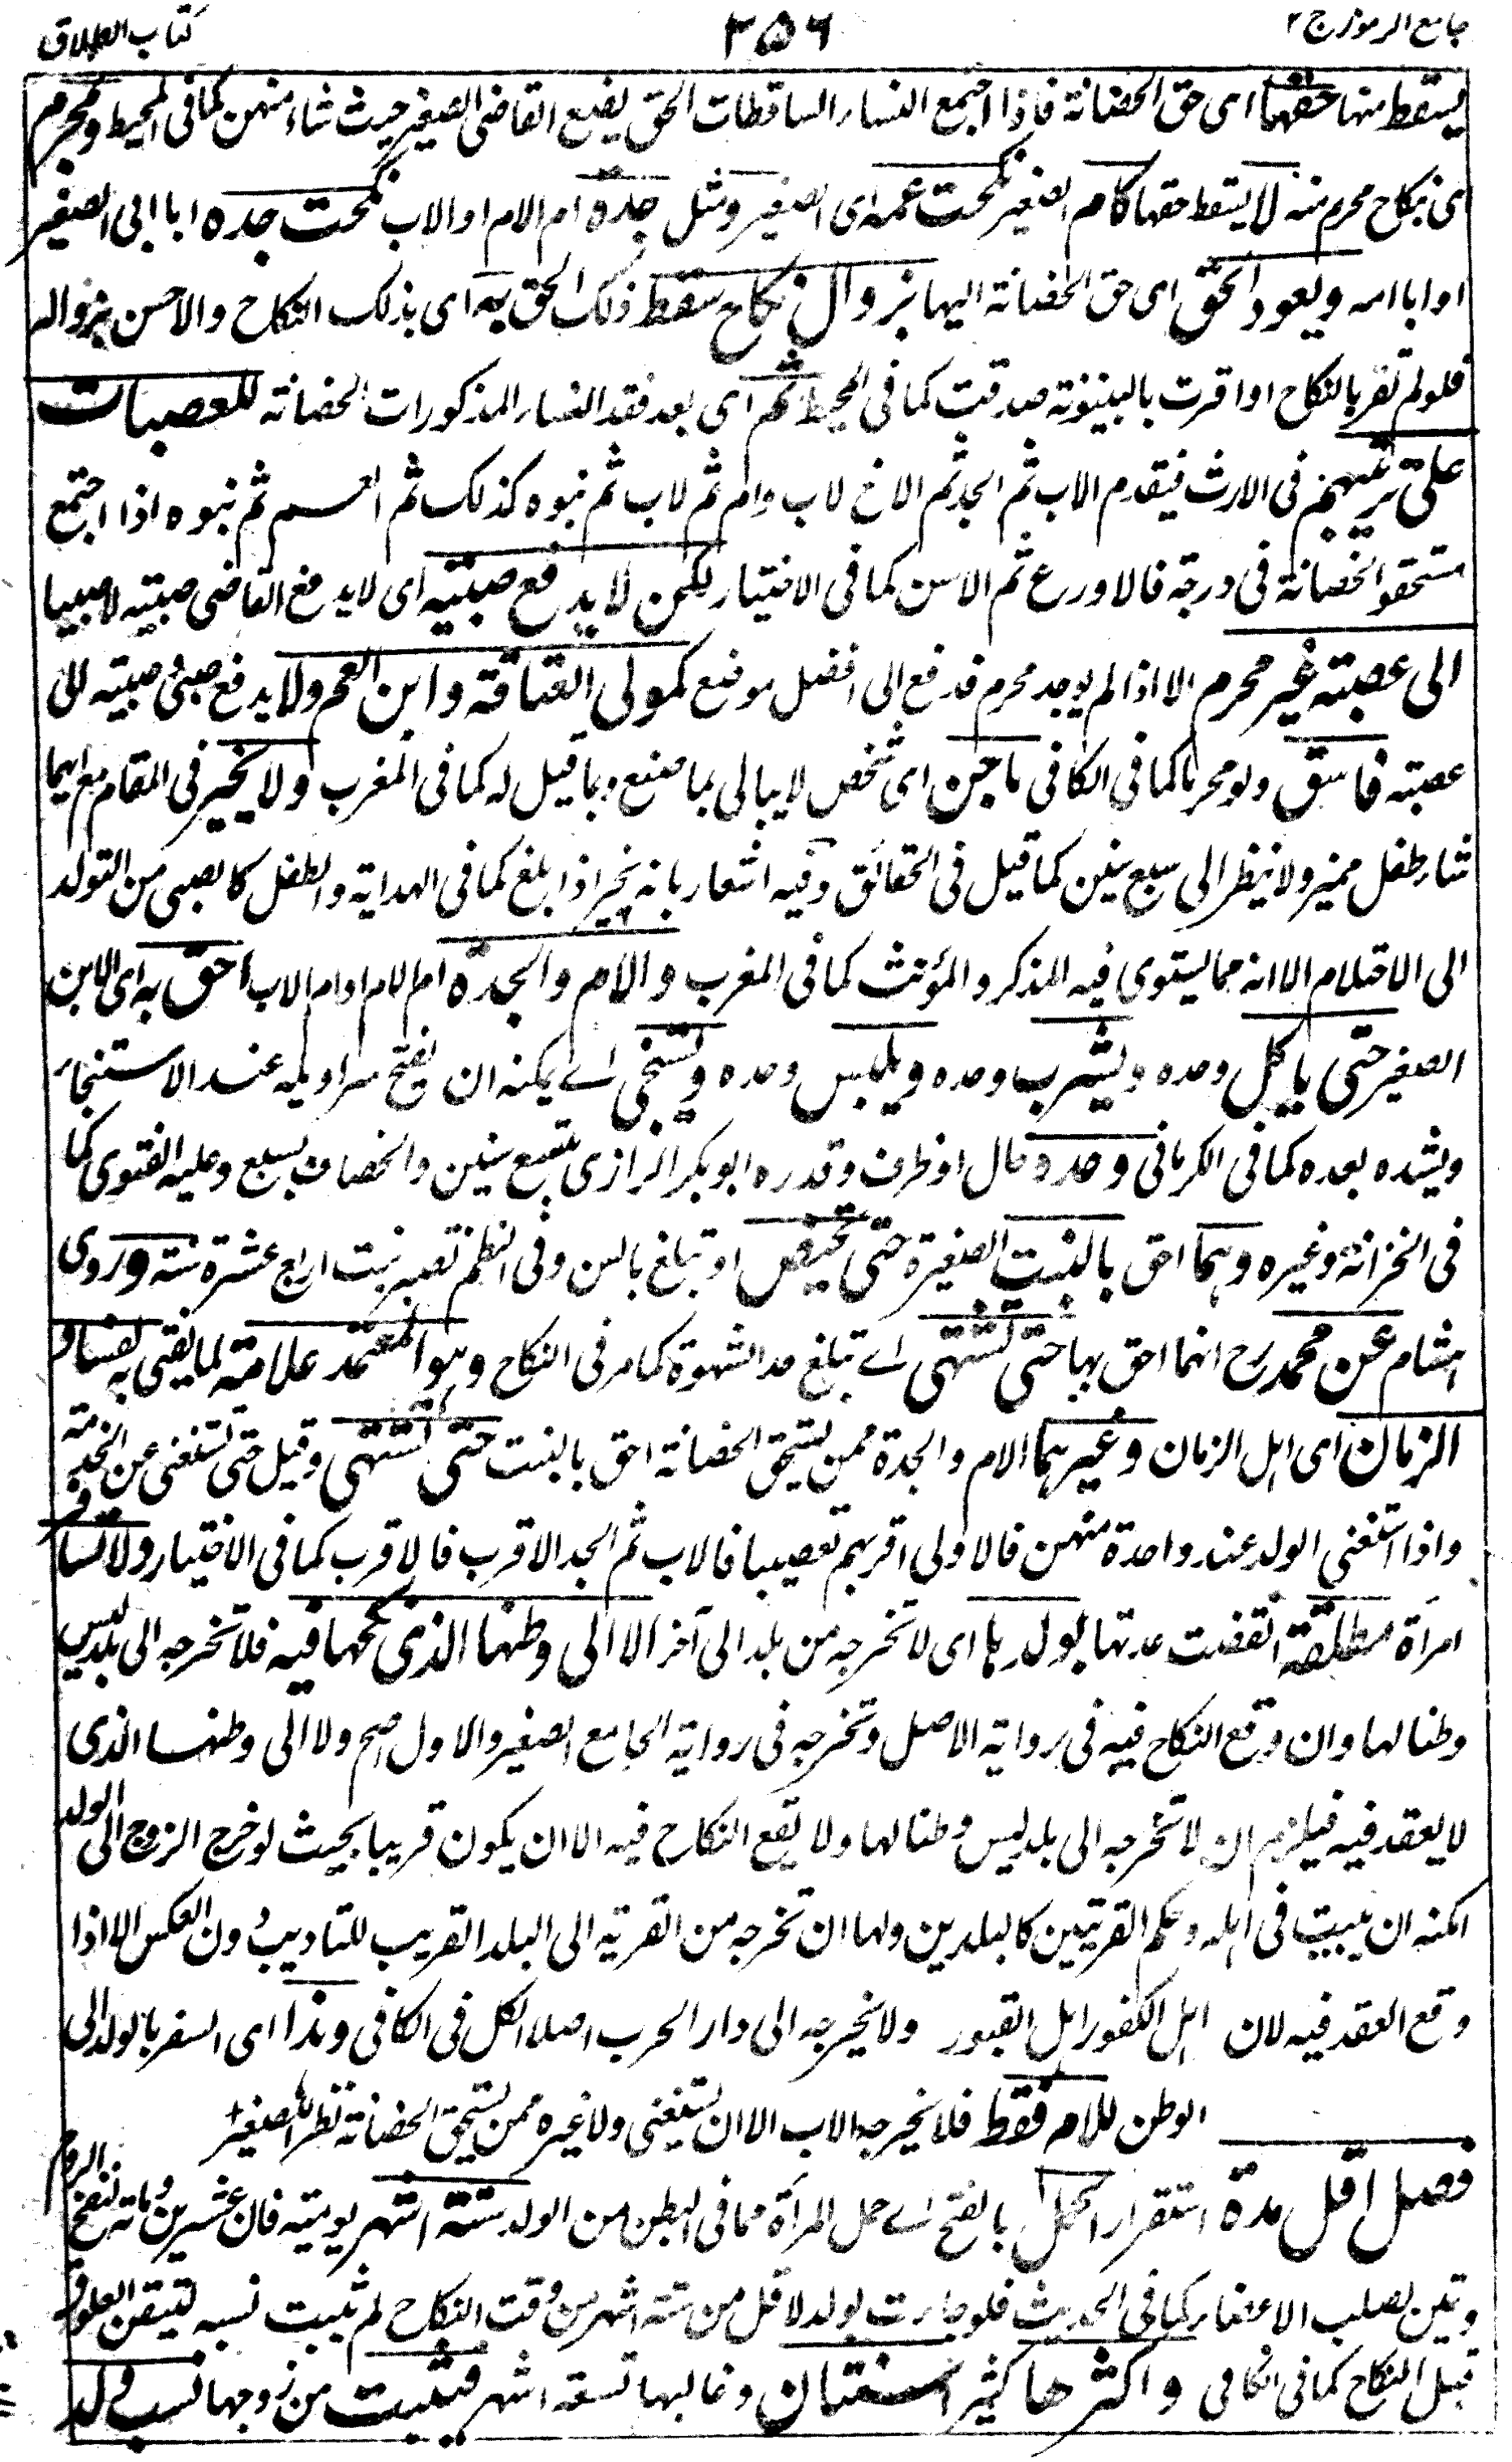 جامع الرموز ج ٢
٣٥٦
كتاب الطلاق
يسقط منها حقها اى حق الحضانة فاذا اجتمع النساء الساقطات الحق يضع القاضى الصغير حيث شاء منهن كما فى المحيط وبمحرم
اى بنكاح محرم منه لا يسقط حقها كام الصغير نكحت عمه اى الصغير ومثل جدة ام الام او الاب نكحت جده ابا ابى الصغير
او ابا امه ويعود الحق اى حق الحضانة اليها بزوال نكاح سقط ذلك الحق به اى بذلك النكاح والاحسن بزواله
فلو لم تقر بالنكاح او اقرت بالبينونة صدقت كما فى المحيط ثم اى بعد فقد النساء المذكورات الحضانة للعصبات
على ترتيبهم فى الارث فيقدم الاب ثم الجد ثم الاخ لاب وام ثم لاب ثم بنوه كذلك ثم العم ثم بنوه اذا اجتمع
مستحقو الحضانة فى درجة فالاورع ثم الاسن كما فى الاختيار لكن لا يدفع صبية اى لا يدفع القاضى صبية لا صبيا
الى عصبة غير محرم الا اذا لم يوجد محرم فدفع الى افضل موضع كمولى العتاقة وابن العم ولا يدفع صبى وصبية الى
عصبة فاسق ولو محرما كما فى الكافى ماجن اى شخص لا يبالى بما صنع وبما قيل له كما فى المغرب ولا يخير فى المقام مع ايهما
شاء طفل مميز ولا ينظر الى سبع سنين كما قيل فى الحقائق وفيه اشعار بانه يخير اذا بلغ كما فى الهداية والطفل كالصبى من التولد
الى الاحتلام الا انه مما يستوى فيه المذكر والمؤنث كما فى المغرب والام والجدة ام الام او ام الاب احق به اى الابن
الصغير حتى ياكل وحده ويشرب وحده ويلبس وحده ويستنجى اى يمكنه ان يفتح سراويله عند الاستنجاء
ويشده بعده كما فى الكرمانى وحده حال او ظرف وقدره ابو بكر الرازى بتسع سنين والخصاف بسبع وعليه الفتوى كما
فى الخزانة وغيره وهما احق بالبنت الصغيرة حتى تحيض او تبلغ بالسن وفى النظم تصير بنت اربع عشرة سنة وروى
هشام عن محمد رح انهما احق بها حتى تشتهى اى تبلغ حد الشهوة كما مر فى النكاح وهو المعتمد علامة لما يفتى به لفساد
الزمان اى اهل الزمان وغيرهما الام والجدة ممن يستحق الحضانة احق بالبنت حتى تشتهى وقيل حتى تستغنى عن الخدمة
واذا استغنى الولد عند واحدة منهن فالاولى اقربهم تعصيبا فالاب ثم الجد الاقرب فالاقرب كما فى الاختيار ولا تسافر
امرأة مطلقة انقضت عدتها بولدها اى لا تخرجه من بلد الى آخر الا الى وطنها الذى نكحها فيه فلا تخرجه الى بلد ليس
وطنا لها وان وقع النكاح فيه فى رواية الاصل وتخرجه فى رواية الجامع الصغير والاول اصح ولا الى وطنها الذى
لا يعقد فيه فيلزم ان لا تخرجه الى بلد ليس وطنا لها ولا يقع النكاح فيه الا ان يكون قريبا بحيث لو خرج الزوج الى الولد
امكنه ان يبيت فى اهله وحكم القريتين كالبلدين ولها ان تخرجه من القرية الى البلد القريب للتاديب دون العكس الا اذا
وقع العقد فيه لان اهل الكفور اهل القبور ولا يخرجه الى دار الحرب اصلا الكل فى الكافى وهذا اى السفر بالولد الى
الوطن للام فقط فلا يخرجه الاب الا ان يستغنى ولا غيره ممن يستحق الحضانة نظرا للصغير
فصل اقل مدة استقرار الحمل بالفتح اى حمل المرأة مما فى البطن من الولد ستة اشهر يومية فان عشرين ومائة لنفخ الروح
وتين لصلب الاعضاء كما فى الحديث فلو جاءت بولد لاقل من ستة اشهر من وقت النكاح لم يثبت نسبه لتيقن العلوق
قبل النكاح كما فى الكافى واكثرها كثيرا سنتان وغالبها تسعة اشهر فيثبت من زوجها نسب ولد